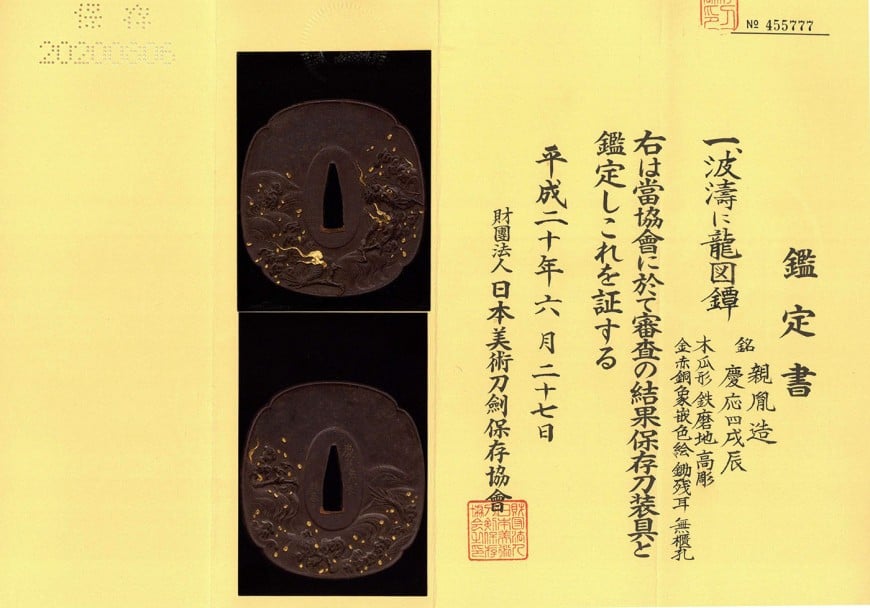 № 455777
鑑定書
一、波濤に龍図鐔
銘 親胤造
慶応四戊辰
木瓜形 鉄磨地 高彫
金赤銅象嵌色絵 鋤残耳 無櫃孔
右は當協會に於て審査の結果保存刀装具と
鑑定しこれを証する
平成二十年六月二十七日
財團法人 日本美術刀劍保存協會
財団法人日本美術刀剣保存協会之印
保存
20200606